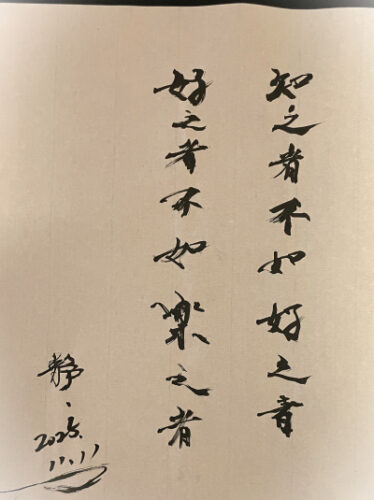 知之者不如好之者
好之者不如樂之者
静、
2025.
11.11